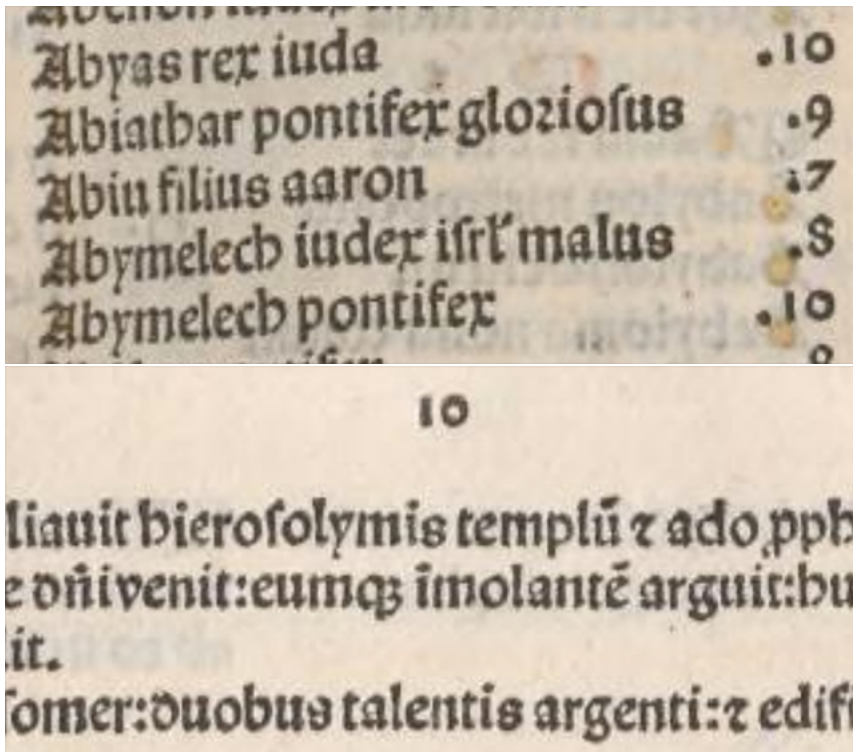 Abyas rex iuda .10
Abiathar pontifex glorioſus .9
Abiu filius aaron 17
Abymelech iudex iſrł malus .8
Abymelech pontifex .10
10
liauit hieroſolymis templū ⁊ ado ꝓph
e dn̄i venit:eumqꝫ īmolantē arguit:hu
it.
ſomer:duobus talentis argenti:⁊ edifi